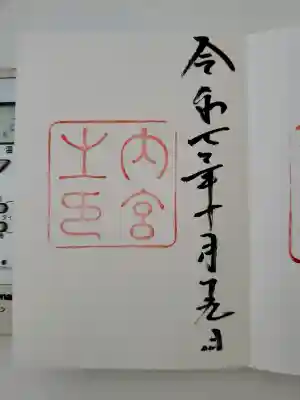 令和七年十月
日
内宮
之印